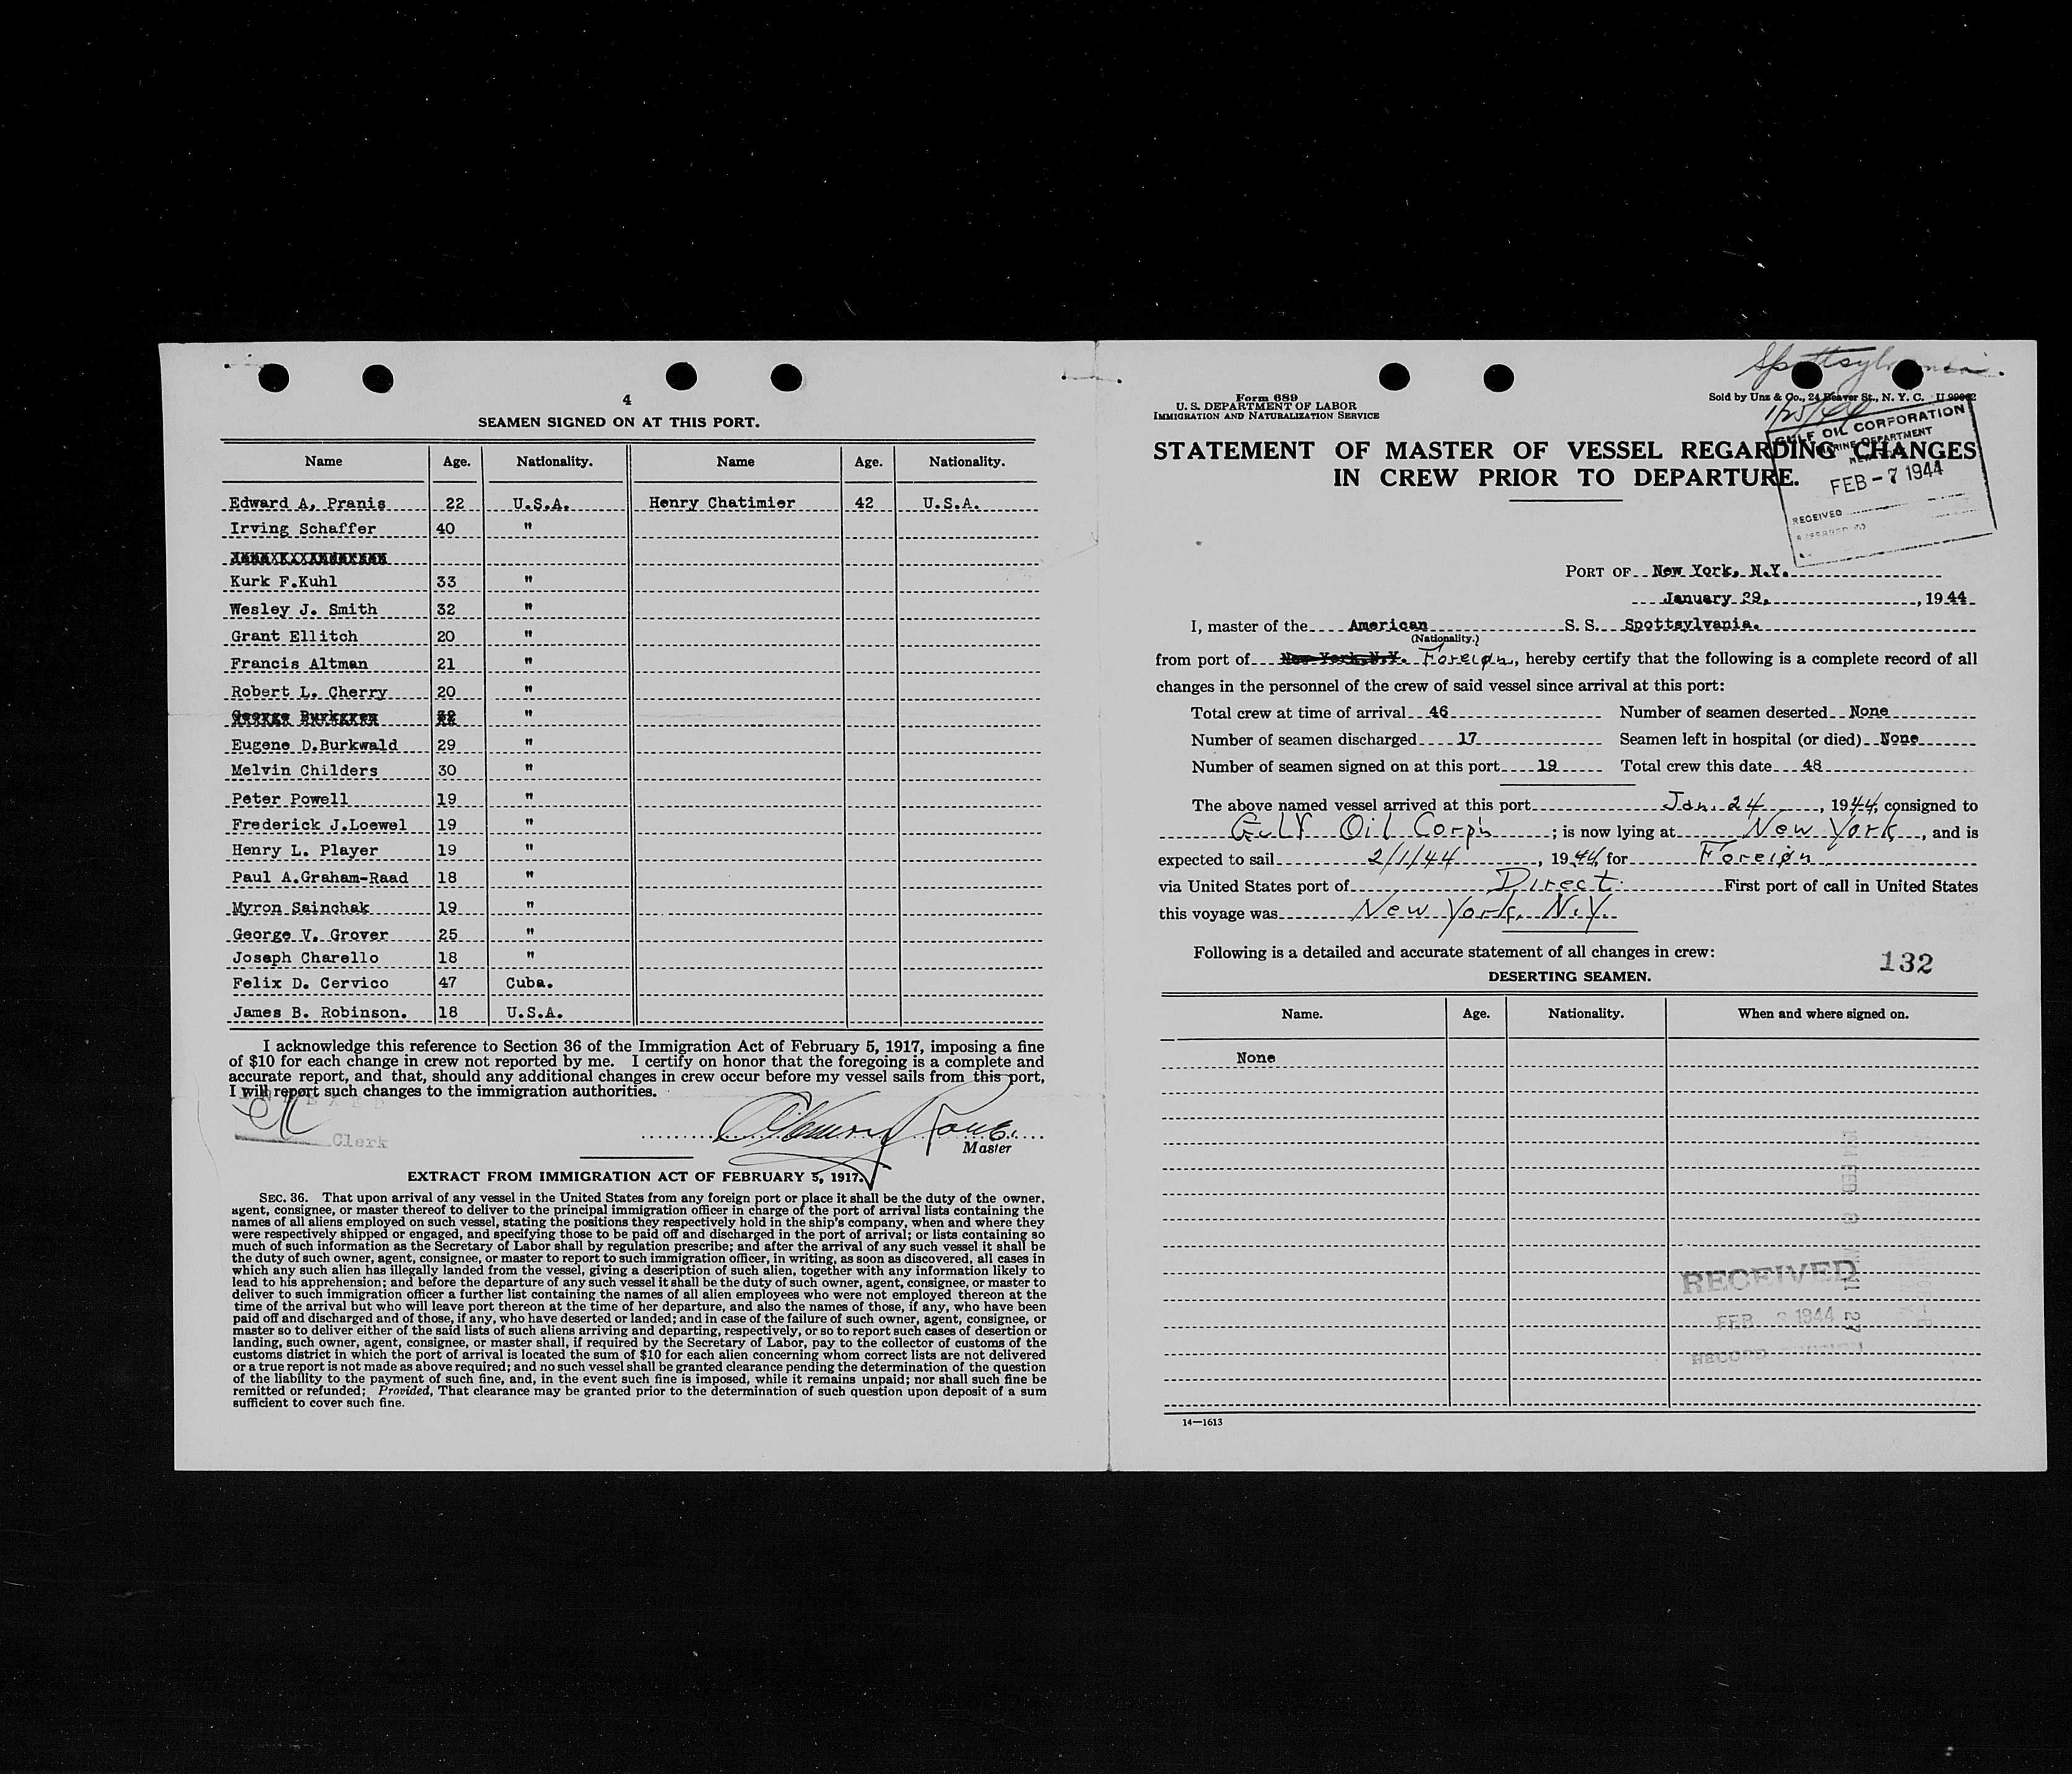 4
SEAMEN SIGNED ON AT THIS PORT.
Name Age. Nationality. Name Age. Nationality.
Edward A. Pranis 22 U.S.A. Henry Chatimier 42 U.S.A.
Irving Schaffer 40 "
Kurk F.Kuhl 33 "
Wesley J. Smith 32 "
Grant Ellitch 20 "
Francis Altman 21 "
Robert L. Cherry 20 "
George "
Eugene D.Burkwald 29 "
Melvin Childers 30 "
Peter Powell 19 "
Frederick J.Loewel 19 "
Henry L. Player 19 "
Paul A.Graham-Raad 18 "
Myron Sainchak 19 "
George V. Grover 25 "
Joseph Charello 18 "
Felix D. Cervico 47 Cuba.
James B. Robinson. 18 U.S.A.
I acknowledge this reference to Section 36 of the Immigration Act of February 5, 1917, imposing a fine
of $10 for each change in crew not reported by me. I certify on honor that the foregoing is a complete and
accurate report, and that, should any additional changes in crew occur before my vessel sails from this port,
I will report such changes to the immigration authorities.
Clerk
Master
EXTRACT FROM IMMIGRATION ACT OF FEBRUARY 5, 1917.
SEC. 36. That upon arrival of any vessel in the United States from any foreign port or place it shall be the duty of the owner,
agent, consignee, or master thereof to deliver to the principal immigration officer in charge of the port of arrival lists containing the
names of all aliens employed on such vessel, stating the positions they respectively hold in the ship's company, when and where they
were respectively shipped or engaged, and specifying those to be paid off and discharged in the port of arrival; or lists containing so
much of such information as the Secretary of Labor shall by regulation prescribe; and after the arrival of any such vessel it shall be
the duty of such owner, agent, consignee, or master to report to such immigration officer, in writing, as soon as discovered, all cases in
which any such alien has illegally landed from the vessel, giving a description of such alien, together with any information likely to
lead to his apprehension; and before the departure of any such vessel it shall be the duty of such owner, agent, consignee, or master to
deliver to such immigration officer a further list containing the names of all alien employees who were not employed thereon at the
time of the arrival but who will leave port thereon at the time of her departure, and also the names of those, if any, who have been
paid off and discharged and of those, if any, who have deserted or landed; and in case of the failure of such owner, agent, consignee, or
master so to deliver either of the said lists of such aliens arriving and departing, respectively, or so to report such cases of desertion or
landing, such owner, agent, consignee, or master shall, if required by the Secretary of Labor, pay to the collector of customs of the
customs district in which the port of arrival is located the sum of $10 for each alien concerning whom correct lists are not delivered
or a true report is not made as above required; and no such vessel shall be granted clearance pending the determination of the question
of the liability to the payment of such fine, and, in the event such fine is imposed, while it remains unpaid; nor shall such fine be
remitted or refunded; Provided, That clearance may be granted prior to the determination of such question upon deposit of a sum
sufficient to cover such fine.
Spottsylvania.
Form 689
U. S. DEPARTMENT OF LABOR
IMMIGRATION AND NATURALIZATION SERVICE
Sold by Unz & Co., 24 Beaver St., N. Y. C.
1/25/44
GULF OIL CORPORATION
MARINE DEPARTMENT
FEB - 7 1944
RECEIVED
STATEMENT OF MASTER OF VESSEL REGARDING CHANGES
IN CREW PRIOR TO DEPARTURE.
PORT OF New York, N.Y.
January 29, , 1944
I, master of the American S. S. Spottsylvania.
(Nationality.)
from port of New York,N.Y. Foreign, hereby certify that the following is a complete record of all
changes in the personnel of the crew of said vessel since arrival at this port:
Total crew at time of arrival 46 Number of seamen deserted None
Number of seamen discharged 17 Seamen left in hospital (or died) None
Number of seamen signed on at this port 19 Total crew this date 48
The above named vessel arrived at this port Jan. 24, 1944, consigned to
Gulf Oil Corp'n ; is now lying at New York, and is
expected to sail 2/1/44, 1944, for Foreign
via United States port of Direct. First port of call in United States
this voyage was New York, N.Y.
Following is a detailed and accurate statement of all changes in crew:
132
DESERTING SEAMEN.
Name. Age. Nationality. When and where signed on.
None
RECEIVED
FEB 1944
14—1613